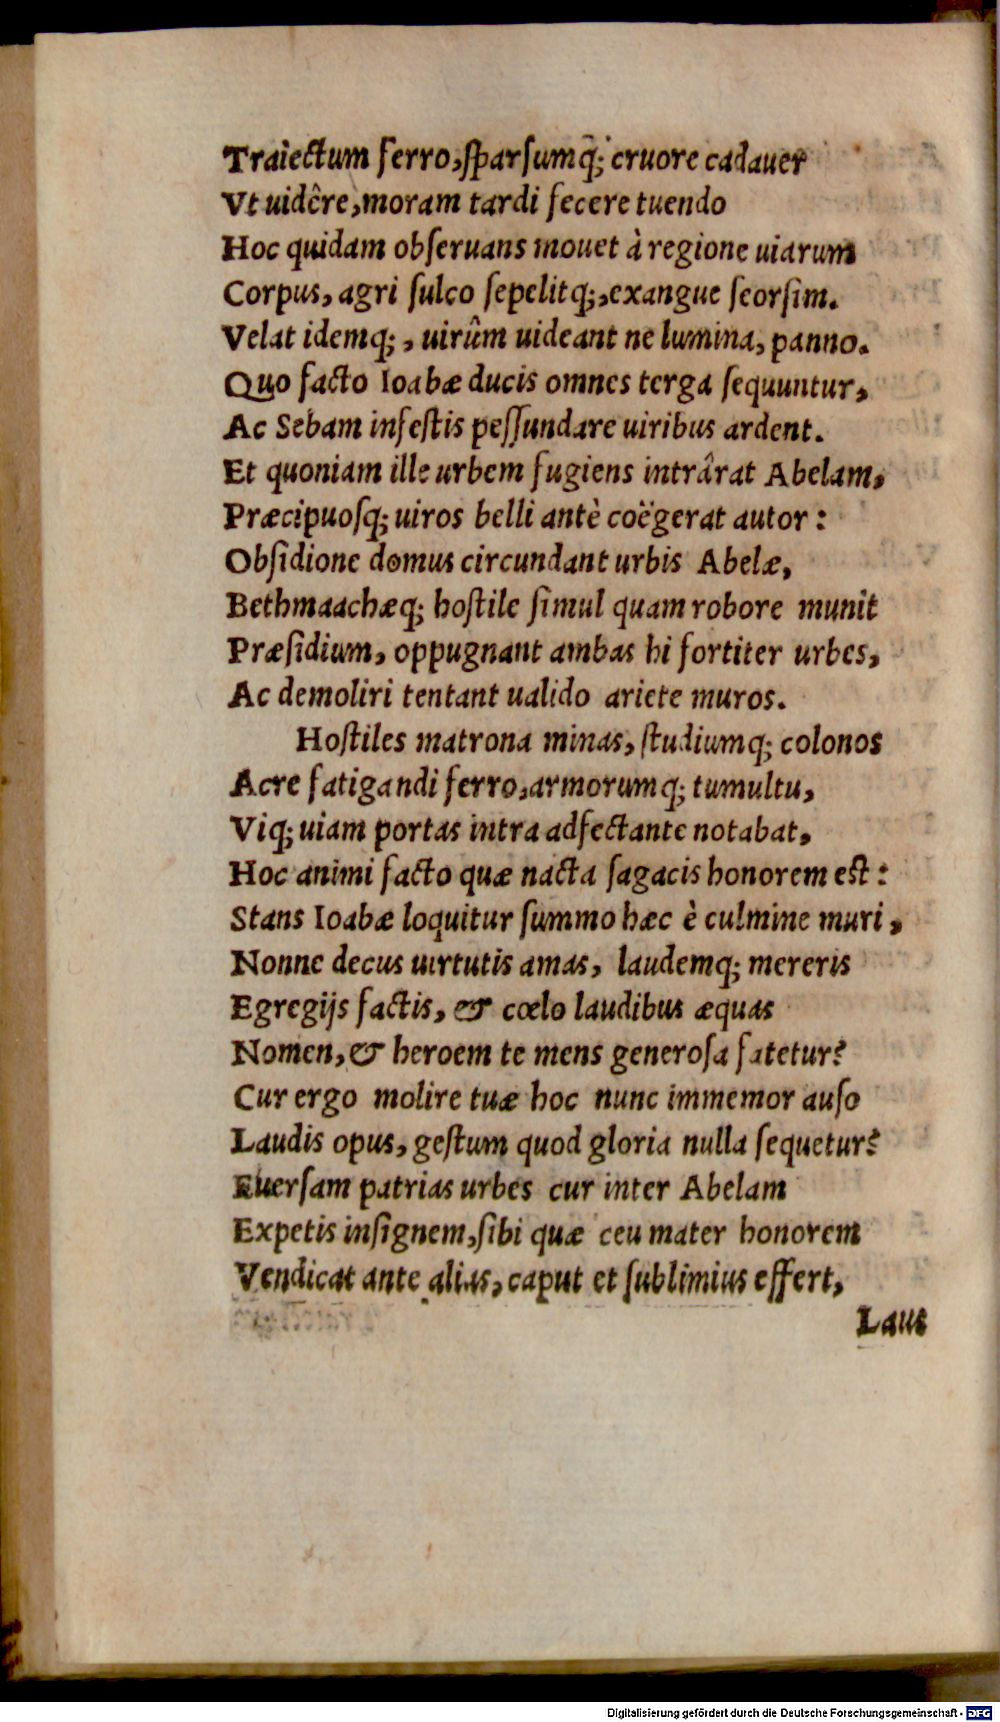 Traiectum ferro, sparsumq̃; cruore cadauer
Vt uidêre, moram tardi fecere tuendo
Hoc quidam obseruans mouet à regione uiarum
Corpus, agri sulco sepelitq;, exangue seorsim.
Velat idemq;, uirûm uideant ne lumina, panno.
Quo facto Ioabæ ducis omnes terga sequuntur,
Ac Sebam infestis pessundare uiribus ardent.
Et quoniam ille urbem fugiens intrârat Abelam,
Præcipuosq; uiros belli antè coëgerat autor:
Obsidione domus circundant urbis Abelæ,
Bethmaachæq; hostile simul quam robore munit
Præsidium, oppugnant ambas hi fortiter urbes,
Ac demoliri tentant ualido ariete muros.
Hostiles matrona minas, studiumq; colonos
Acre fatigandi ferro, armorumq; tumultu,
Viq; uiam portas intra adfectante notabat,
Hoc animi facto quæ nacta sagacis honorem est:
Stans Ioabæ loquitur summo hæc è culmine muri,
Nonne decus uirtutis amas, laudemq; mereris
Egregijs factis, & cœlo laudibus æquas
Nomen, & heroem te mens generosa fatetur?
Cur ergo molire tuæ hoc nunc immemor auso
Laudis opus, gestum quod gloria nulla sequetur?
Euersam patrias urbes cur inter Abelam
Expetis insignem, sibi quæ ceu mater honorem
Vendicat ante alias, caput et sublimius effert,
Laus
Digitalisierung gefördert durch die Deutsche Forschungsgemeinschaft - DFG